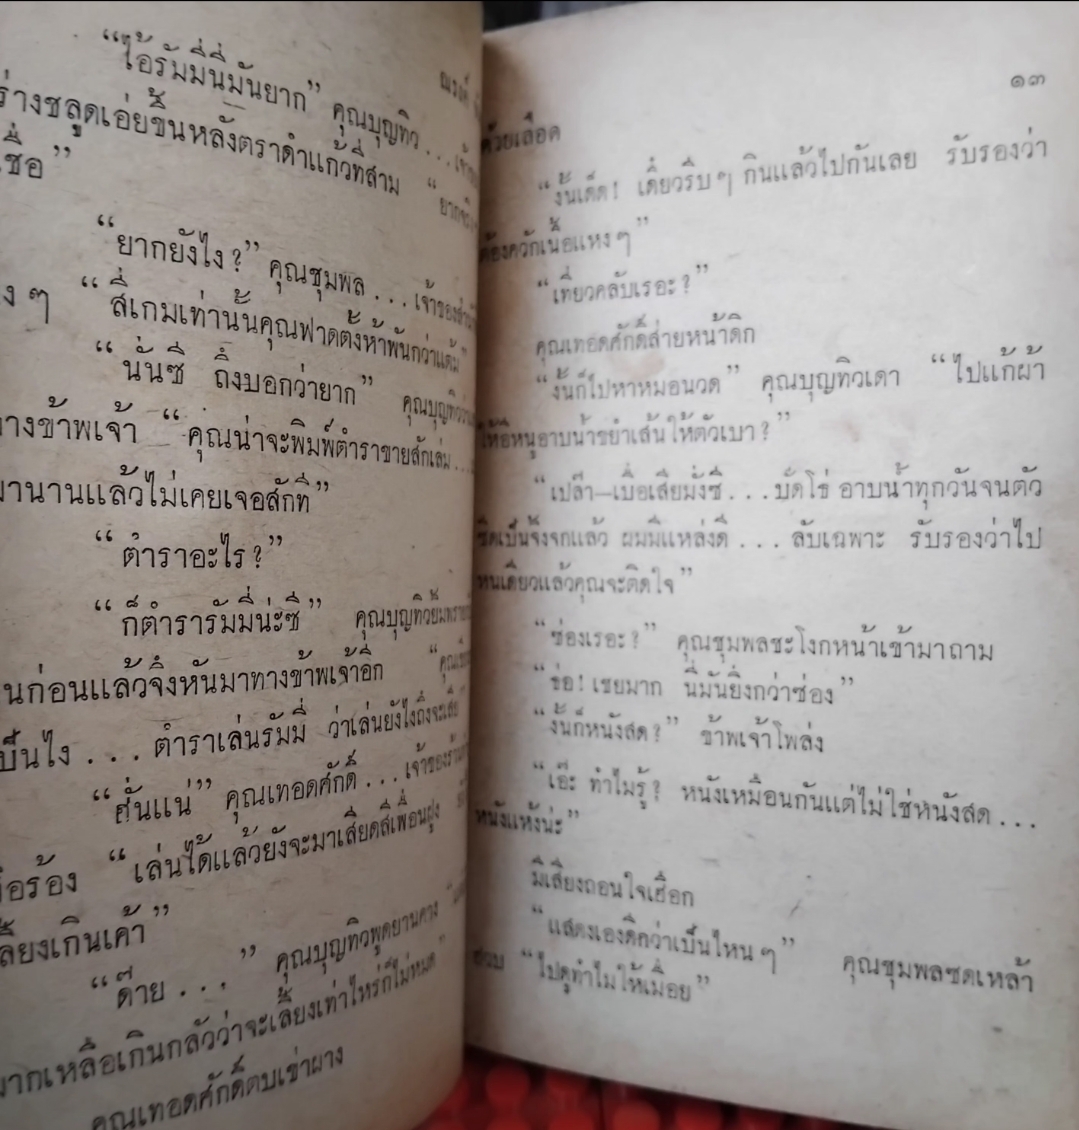 “ไอ้รัมมี่นี่มันยาก” คุณบุญทิว . . . เจ้า
ร่างชลูดเอ่ยขึ้นหลังตราดำแก้วที่สาม “ยาก
เชื่อ”
“ยากยังไง?” คุณชุมพล . . . เจ้าของ
ง ๆ “สี่เกมเท่านั้นคุณฟาดตั้งห้าพันกว่าแต้ม”
“นั่นซี ถึงบอกว่ายาก” คุณบุญทิว
ทางข้าพเจ้า “คุณน่าจะพิมพ์ตำราขายสักเล่ม . . .
มานานแล้วไม่เคยเจอสักที”
“ตำราอะไร?”
“ก็ตำรารัมมี่น่ะซี” คุณบุญทิวยิ้ม
นก่อนแล้วจึงหันมาทางข้าพเจ้าอีก “คุณ
เป็นไง . . . ตำราเล่นรัมมี่ ว่าเล่นยังไงถึงจะเสีย
“ฮั่นแน่” คุณเทอดศักดิ์ . . . เจ้าของ
ร้อง “เล่นได้แล้วยังจะมาเสียดสีเพื่อนฝูง
เลี้ยงเกินเค้า”
“ด๊าย . . . ” คุณบุญทิวพูดยานคาง
มากเหลือเกินกลัวว่าจะเลี้ยงเท่าไหร่ก็ไม่หมด”
คุณเทอดศักดิ์ตบเข่าผาง
ณรงค์
๑๓
ด้วยเลือด
“งั้นเด็ด! เดี๋ยวรีบ ๆ กินแล้วไปกันเลย รับรองว่า
ต้องควักเนื้อแหง ๆ”
“เที่ยวคลับเรอะ?”
คุณเทอดศักดิ์ส่ายหน้าดิก
“งั้นก็ไปหาหมอนวด” คุณบุญทิวเดา “ไปแก้ผ้า
ให้อีหนูอาบน้ำขยำเส้นให้ตัวเบา?”
“เปล๊า—เบื่อเสียมั่งซี . . . บัดโธ่ อาบน้ำทุกวันจนตัว
ซีดเป็นจิ้งจกแล้ว ผมมีแหล่งดี . . . ลับเฉพาะ รับรองว่าไป
หนเดียวแล้วคุณจะติดใจ”
“ซ่องเรอะ?” คุณชุมพลชะโงกหน้าเข้ามาถาม
“ฮ่อ! เชยมาก นี่มันยิ่งกว่าซ่อง”
“งั้นก็หนังสด?” ข้าพเจ้าโพล่ง
“เอ๊ะ ทำไมรู้? หนังเหมือนกันแต่ไม่ใช่หนังสด . . .
หนังแห้งน่ะ”
มีเสียงถอนใจเฮือก
“แสดงเองดีกว่าเป็นไหน ๆ” คุณชุมพลซดเหล้า
ฮวบ “ไปดูทำไมให้เมื่อย”